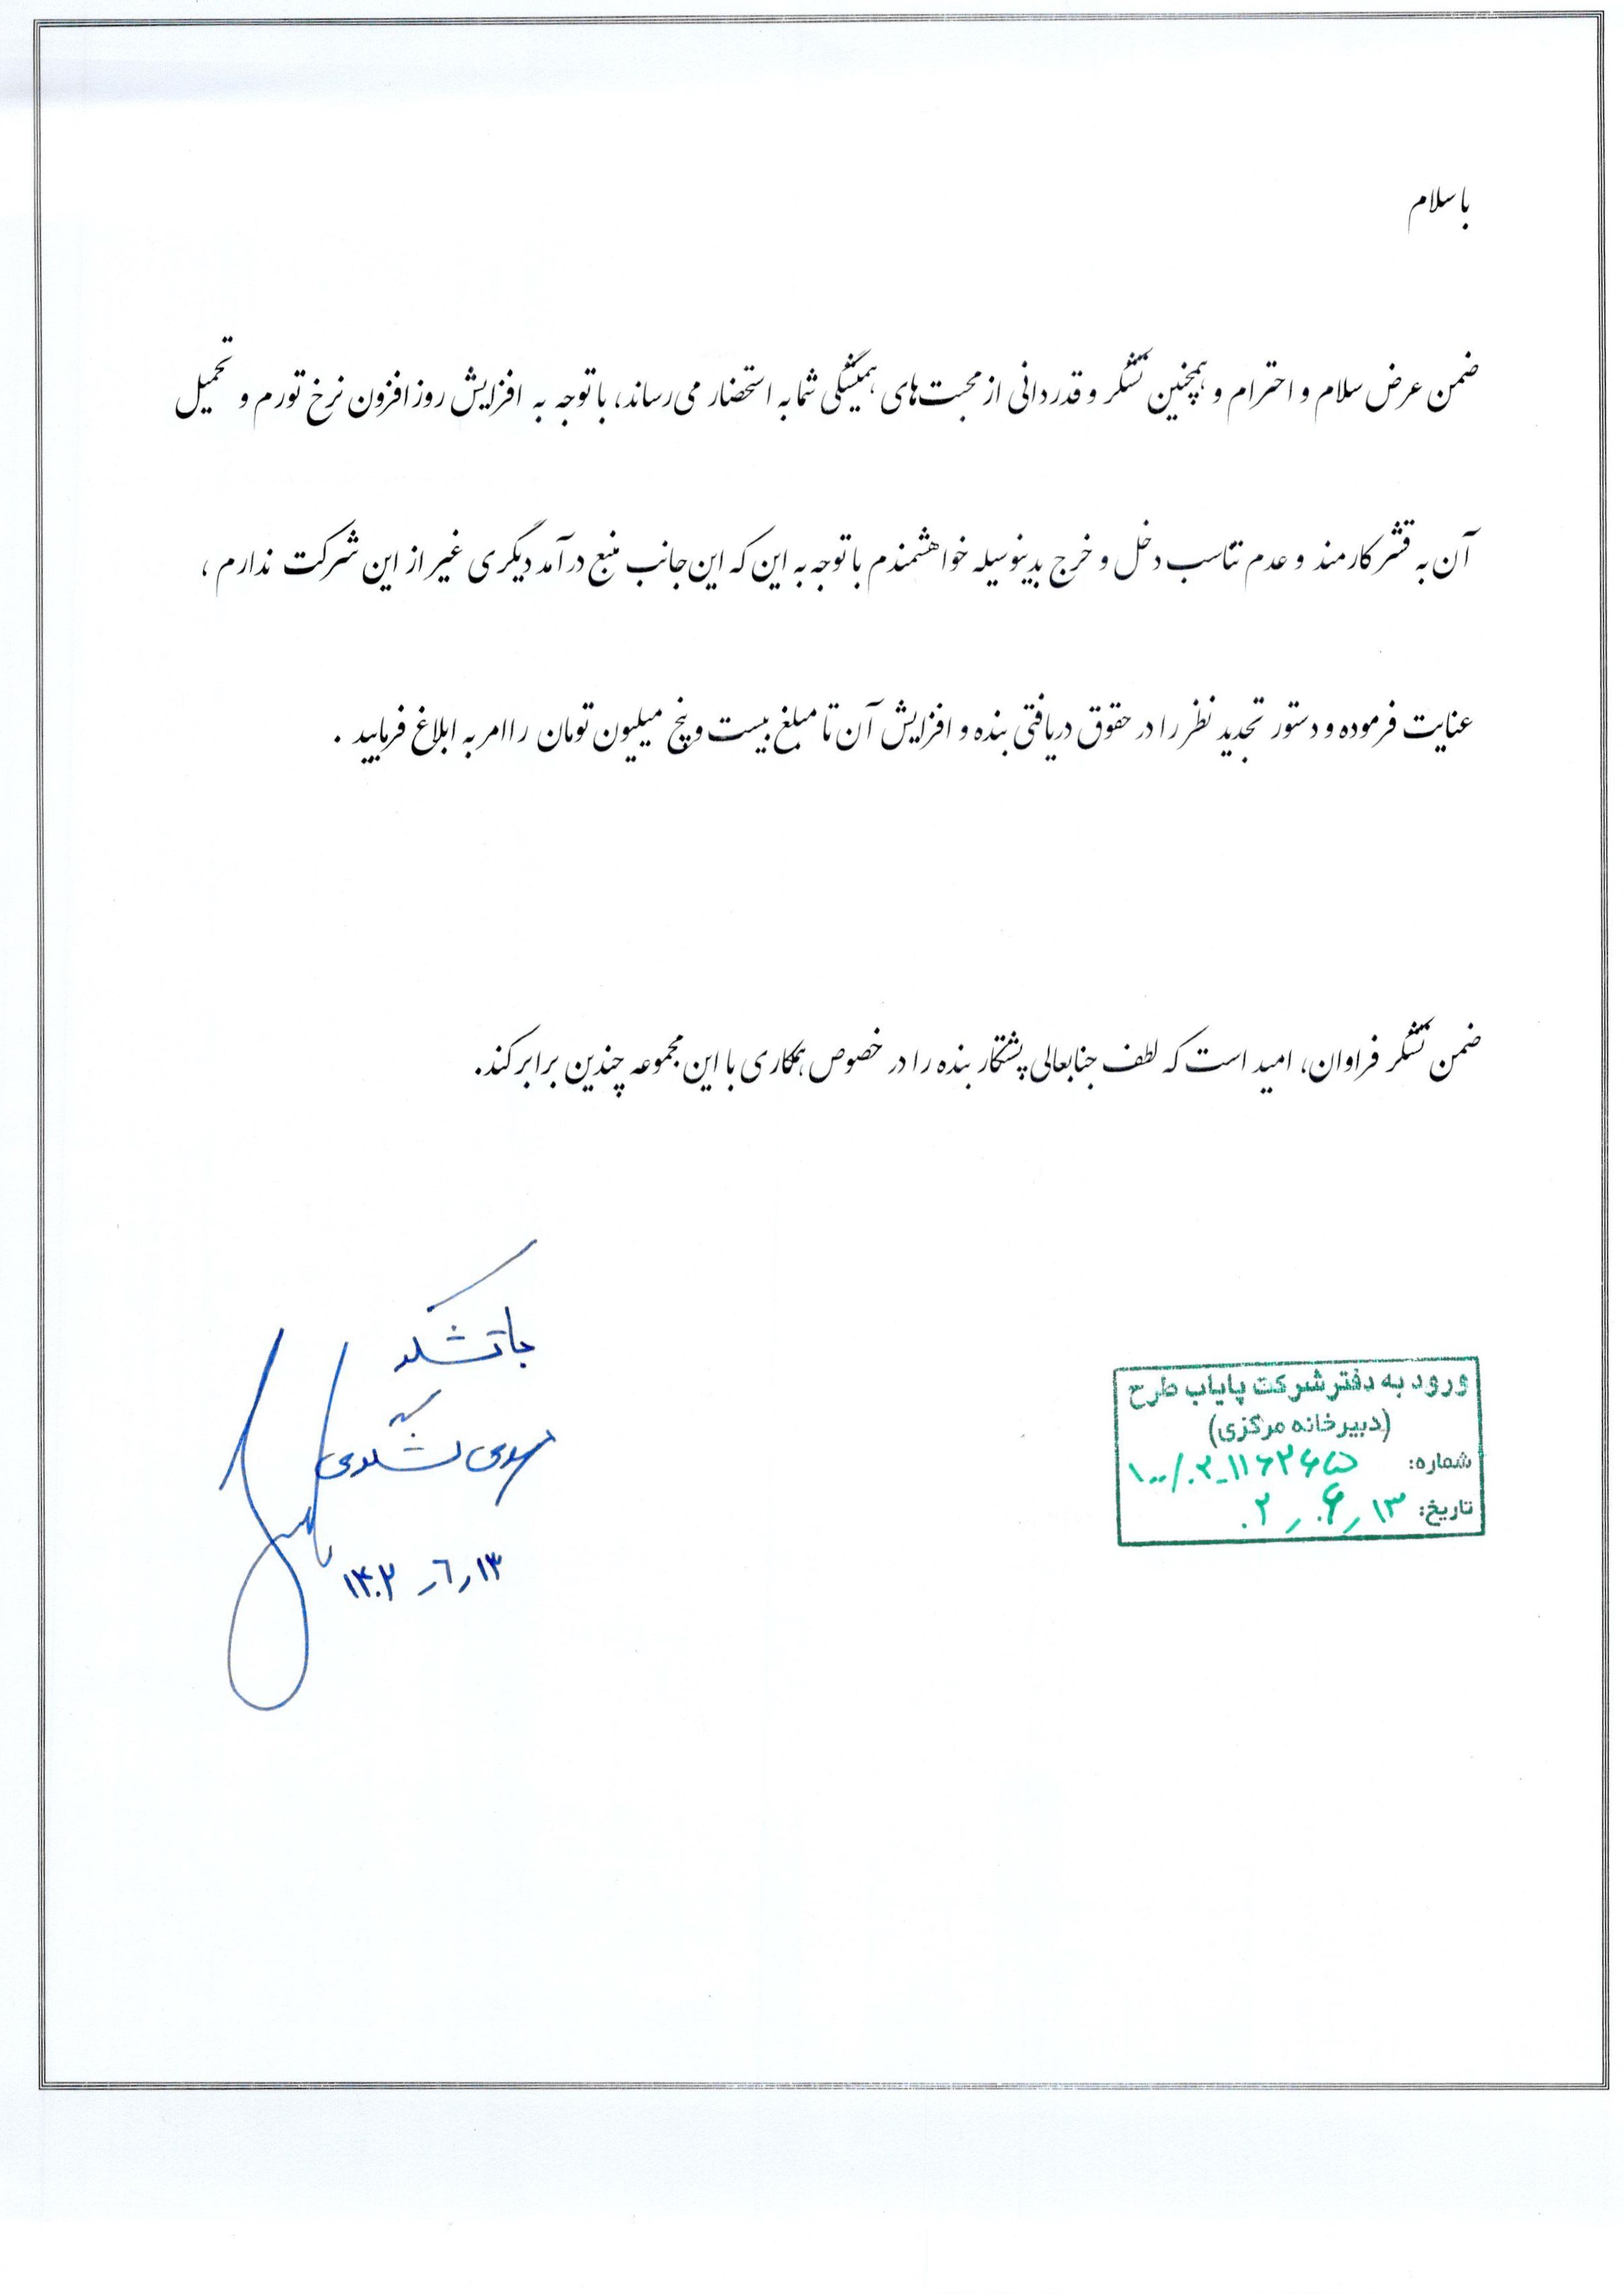 با سلام
ضمن عرض سلام و احترام و همچنین تشکر و قدردانی از محبت‌های همیشگی شما به استحضار می‌رساند، با توجه به افزایش روزافزون نرخ تورم و تحمیل
آن به قشر کارمند و عدم تناسب دخل و خرج بدینوسیله خواهشمندم با توجه به این که این جانب منبع درآمد دیگری غیر از این شرکت ندارم ،
عنایت فرموده و دستور تجدید نظر را در حقوق دریافتی بنده و افزایش آن تا مبلغ بیست و پنج میلیون تومان را امر به ابلاغ فرمایید .
ضمن تشکر فراوان، امید است که لطف جنابعالی پشتکار بنده را در خصوص همکاری با این مجموعه چندین برابر کند.
با تشکر
مهدی
۱۴۰۲٫۶٫۱۳
ورود به دفتر شرکت پایاب طرح
(دبیرخانه مرکزی)
شماره: ۱۰۰/۰۲-۱۱۶۲۶۵
تاریخ: ۰۲٫۰۶٫۱۳